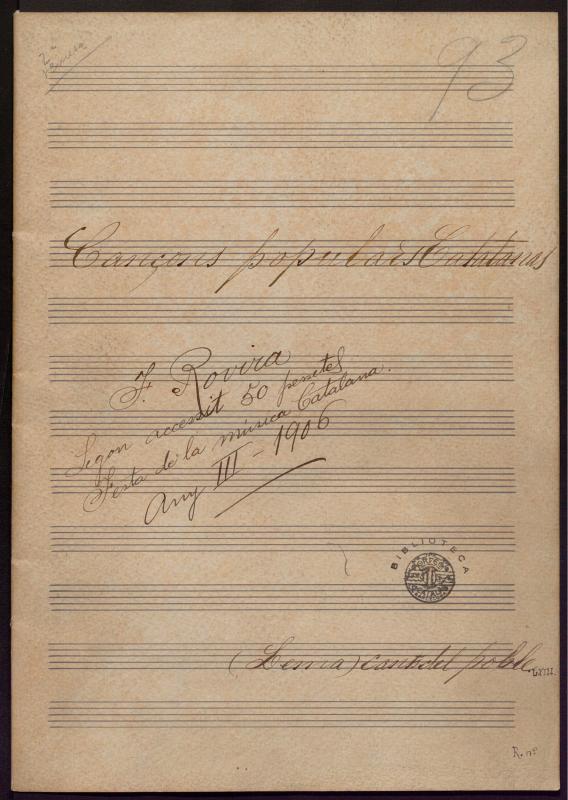 93
Cançons populars Catalanas
F. Rovira
Segon accessit 50 pessetes
Festa de la música Catalana.
Any III - 1906
BIBLIOTECA
(Lema) cant del poble
LXIII.
R. nº